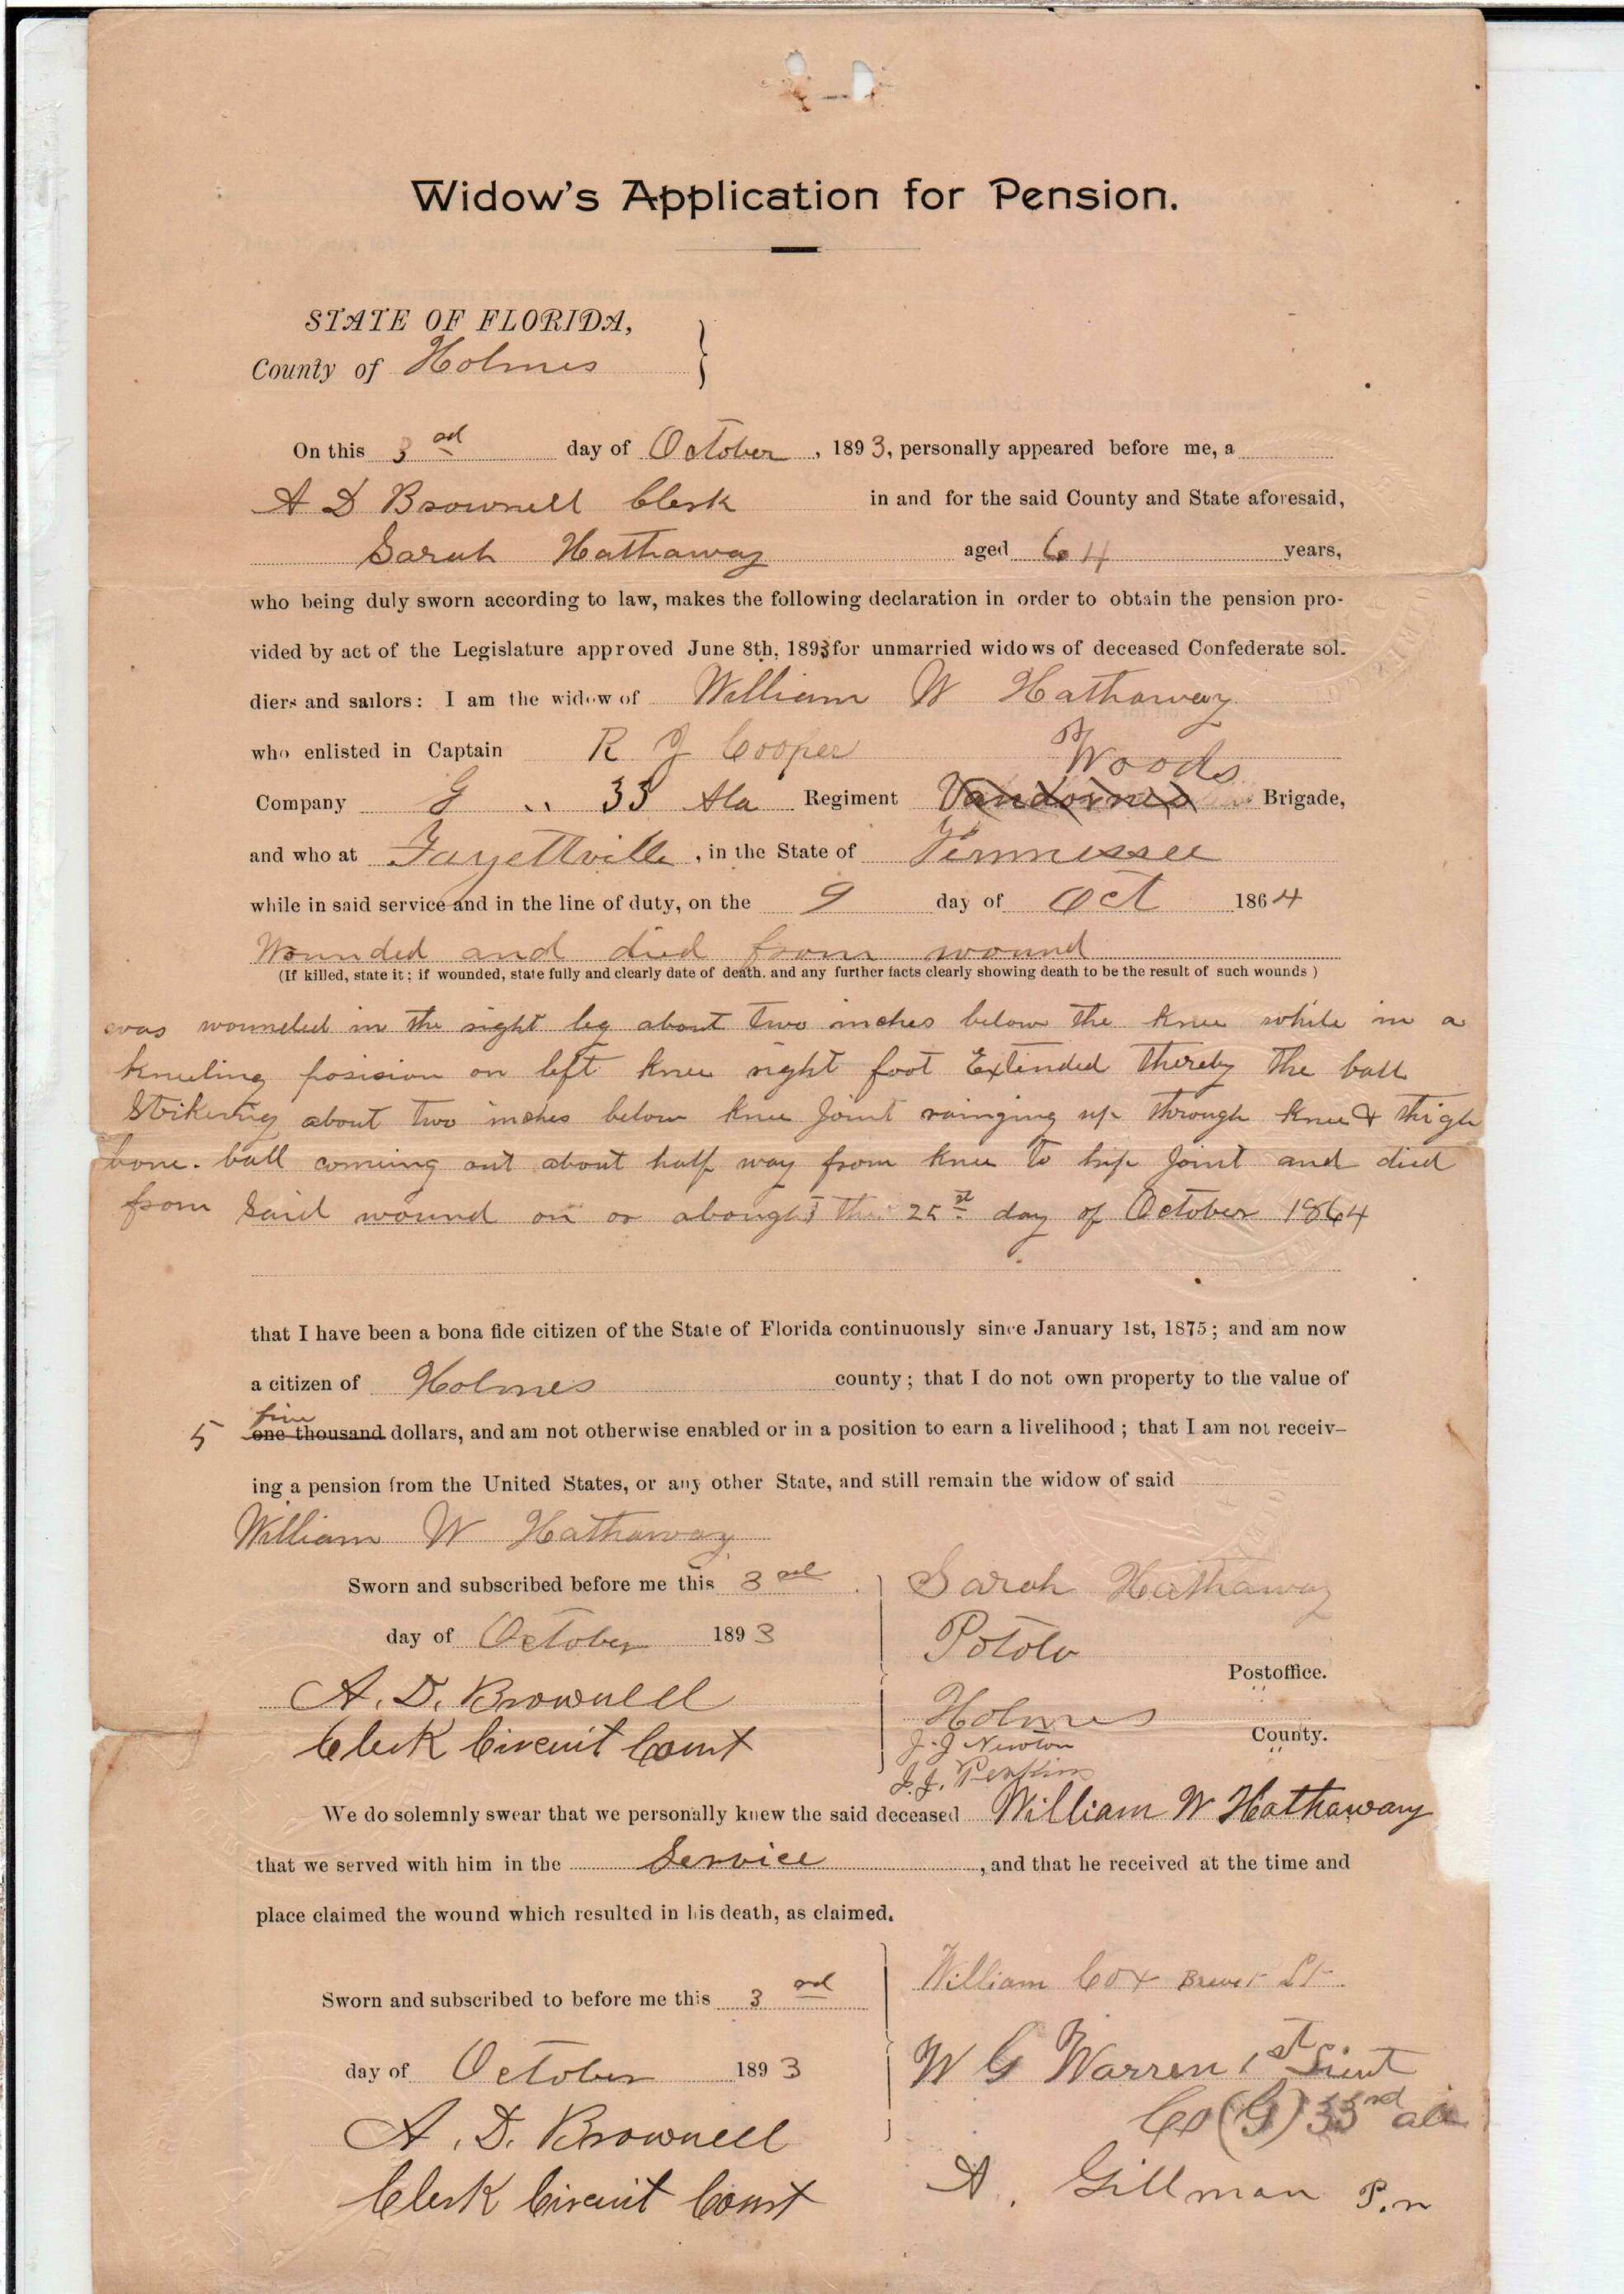 Widow's Application for Pension.
STATE OF FLORIDA,
County of Holmes
On this 3rd day of October, 1893, personally appeared before me, a
A D Brownell Clerk in and for the said County and State aforesaid,
Sarah Hathaway aged 64 years,
who being duly sworn according to law, makes the following declaration in order to obtain the pension pro-
vided by act of the Legislature approved June 8th, 1893 for unmarried widows of deceased Confederate sol-
diers and sailors: I am the widow of William W Hathaway
who enlisted in Captain R J Cooper
Woods
Company G 33 Ala Regiment Vandornes Brigade,
and who at Fayettville, in the State of Tennessee
while in said service and in the line of duty, on the 9 day of Oct 1864
Wounded and died from wound
(If killed, state it; if wounded, state fully and clearly date of death, and any further facts clearly showing death to be the result of such wounds)
was wounded in the right leg about two inches below the knee while in a
kneeling posision on left knee right foot Extended thereby the ball
Strikering about two inches below knee Joint rainging up through knee & thigh
bone. ball coming out about half way from knee to hip Joint and died
from said wound on or abought the 25st day of October 1864
that I have been a bona fide citizen of the State of Florida continuously since January 1st, 1875; and am now
a citizen of Holmes county; that I do not own property to the value of
five
5 one thousand dollars, and am not otherwise enabled or in a position to earn a livelihood; that I am not receiv-
ing a pension from the United States, or any other State, and still remain the widow of said
William W Hathaway
Sworn and subscribed before me this 3rd
day of October 1893
A. D. Brownell
Clerk Circuit Court
Sarah Hathaway
Potolo
Postoffice.
Holmes
County.
J. J Newton
J. J. Perkins
We do solemnly swear that we personally knew the said deceased William W Hathaway
that we served with him in the Service, and that he received at the time and
place claimed the wound which resulted in his death, as claimed.
Sworn and subscribed to before me this 3rd
day of October 1893
A. D. Brownell
Clerk Circuit Court
William Cox Brevet Lt
W G Warren 1st Lieut
Co (G) 33rd ala
A. Gillman P.n